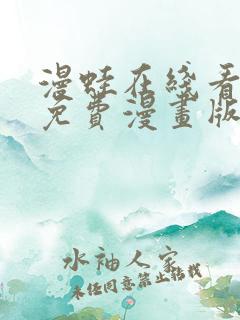 漫蛙在线看
免費漫畫版
水袖人家
未经同意禁止转载